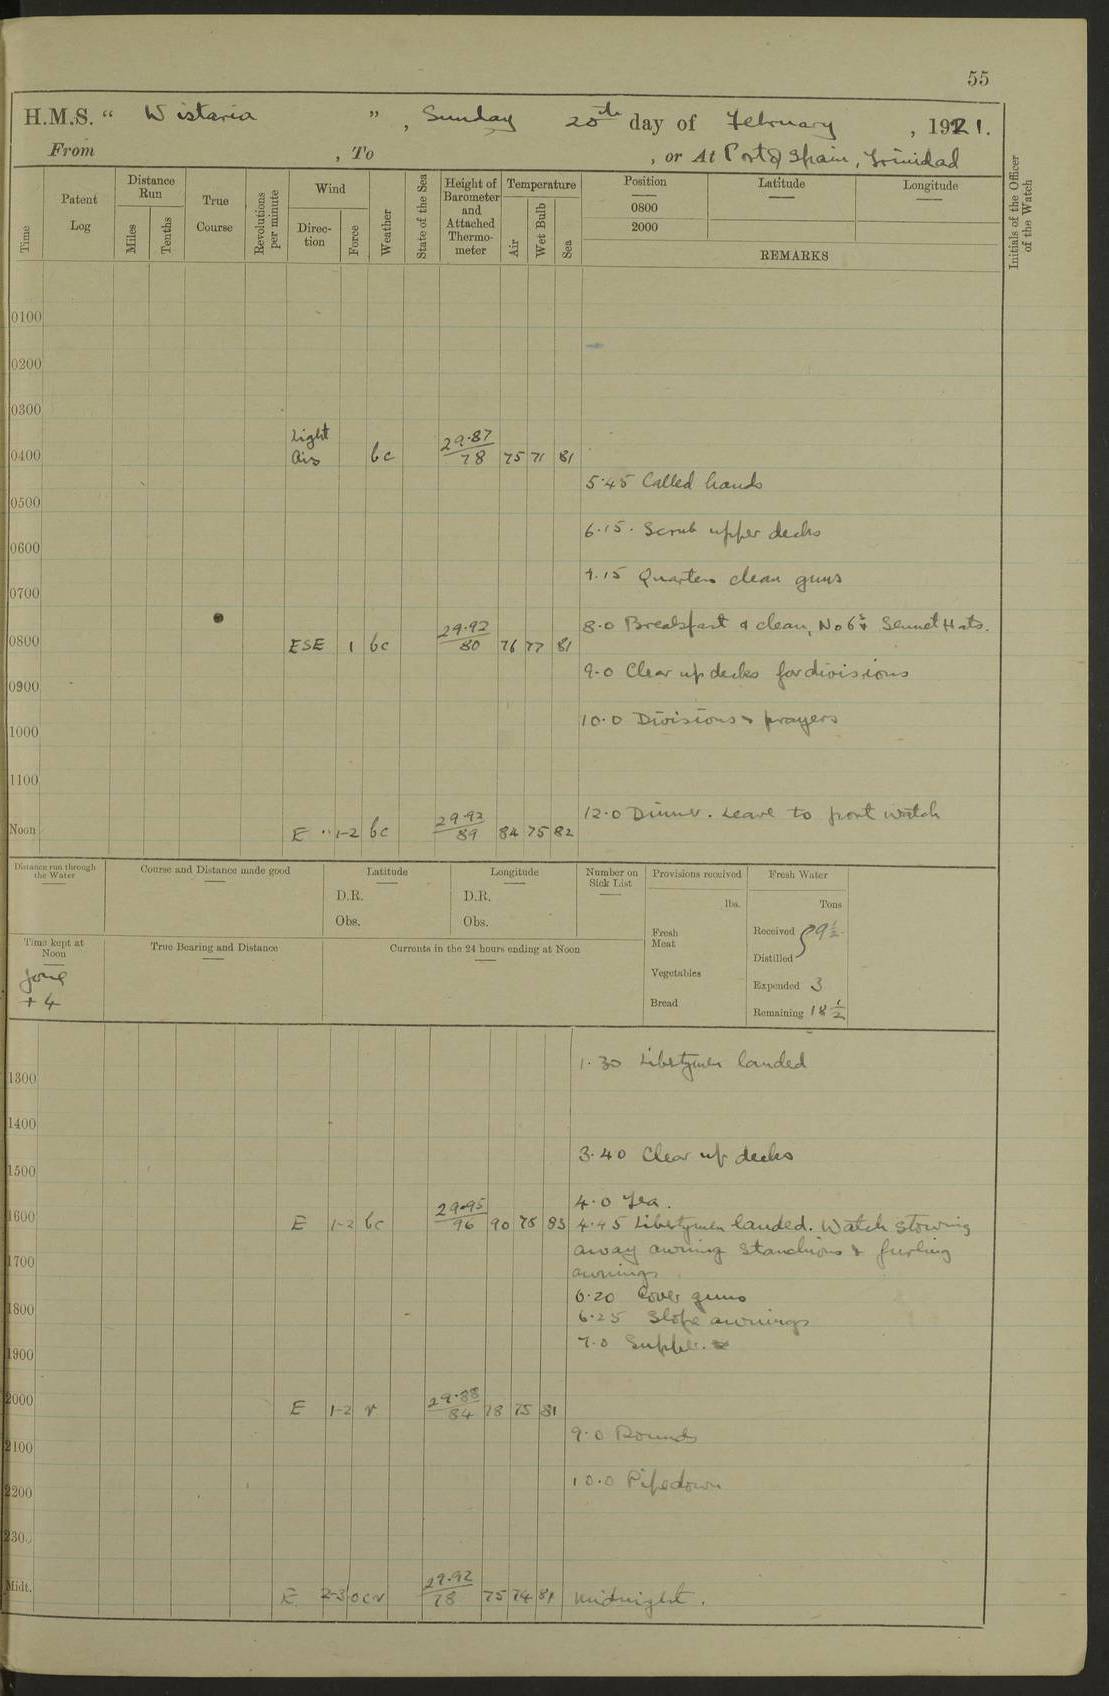 55
H.M.S. “ Wistaria ” , Sunday 20th day of February , 1921.
From , To , or At Port of Spain, Trinidad
Time
Patent Log
Distance Run
Miles
Tenths
True Course
Revolutions per minute
Wind
Direction
Force
Weather
State of the Sea
Height of Barometer and Attached Thermometer
Temperature
Air
Wet Bulb
Sea
Position Latitude Longitude
0800
2000
REMARKS
Initials of the Officer of the Watch
0100
0200
0300
Light
0400 Airs bc 29.87/78 75 71 81
5.45 Called hands
0500
6.15. Scrub upper decks
0600
7.15 Quarters clean guns
0700
8.0 Breakfast & clean, No 6s & Sennet Hats.
0800 ESE 1 bc 29.92/80 76 77 81
9.0 Clear up decks for divisions
0900
10.0 Divisions & prayers
1000
1100
12.0 Dinner. Leave to port watch
Noon E 1-2 bc 29.92/89 84 75 82
Distance run through the Water
Course and Distance made good
Latitude
D.R.
Obs.
Longitude
D.R.
Obs.
Number on Sick List
Provisions received
lbs.
Fresh Meat
Vegetables
Bread
Fresh Water
Tons
Received
Distilled 9½
Expended 3
Remaining 18½
Time kept at Noon
Zone
+ 4
True Bearing and Distance
Currents in the 24 hours ending at Noon
1.30 Libertymen landed
1300
1400
3.40 Clear up decks
1500
4.0 Tea.
1600 E 1-2 bc 29.95/96 90 75 83 4.45 Libertymen landed. Watch stowing
away awning stanchions & furling
1700
awnings
6.20 Cover guns
1800 6.25 Slope awnings
7.0 Supper.
1900
2000 E 1-2 v 29.88/84 78 75 81
9.0 Rounds
2100
10.0 Pipedown
2200
2300
Midt. E 2-3 ocv 29.92/78 75 74 81 Midnight.